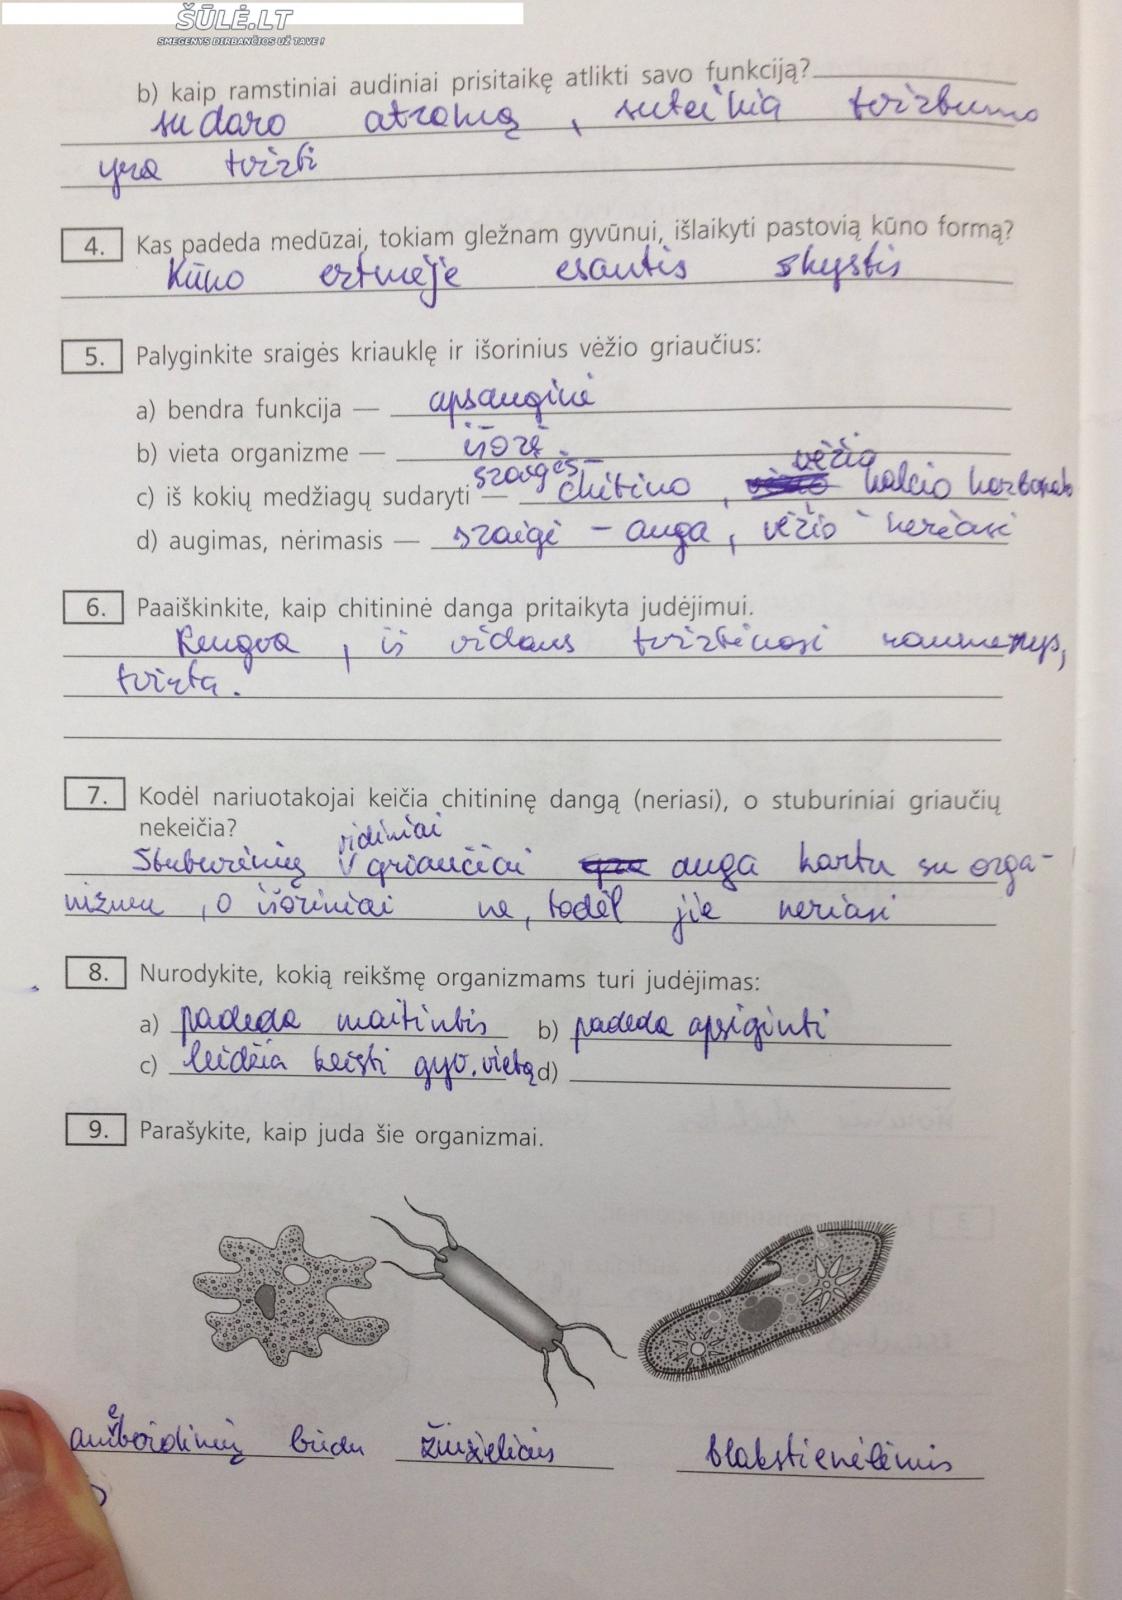 ŠŪLĖ.LT
SMEGENYS DIRBANČIOS UŽ TAVE!
b) kaip ramstiniai audiniai prisitaikę atlikti savo funkciją?
sudaro atramą, suteikia tvirtumo
yra tvirti
4. Kas padeda medūzai, tokiam gležnam gyvūnui, išlaikyti pastovią kūno formą?
Kūno ertmėje esantis skystis
5. Palyginkite sraigės kriauklę ir išorinius vėžio griaučius:
a) bendra funkcija — apsauginė
b) vieta organizme — išorė
sraigės – vėžio
c) iš kokių medžiagų sudaryti — chitino, kalcio karbonato
d) augimas, nėrimasis — sraigė – auga, vėžio – neriasi
6. Paaiškinkite, kaip chitininė danga pritaikyta judėjimui.
Lengva, iš vidaus tvirtinasi raumenys,
tvirta.
7. Kodėl nariuotakojai keičia chitininę dangą (neriasi), o stuburiniai griaučių
nekeičia?
vidiniai
Stuburinių V griaučiai auga kartu su orga-
nizmu, o išoriniai ne, todėl jie neriasi
8. Nurodykite, kokią reikšmę organizmams turi judėjimas:
a) padeda maitintis b) padeda apsiginti
c) leidžia keisti gyv. vietą d)
9. Parašykite, kaip juda šie organizmai.
ameboidinių būdu žiuželiais blakstienėlėmis